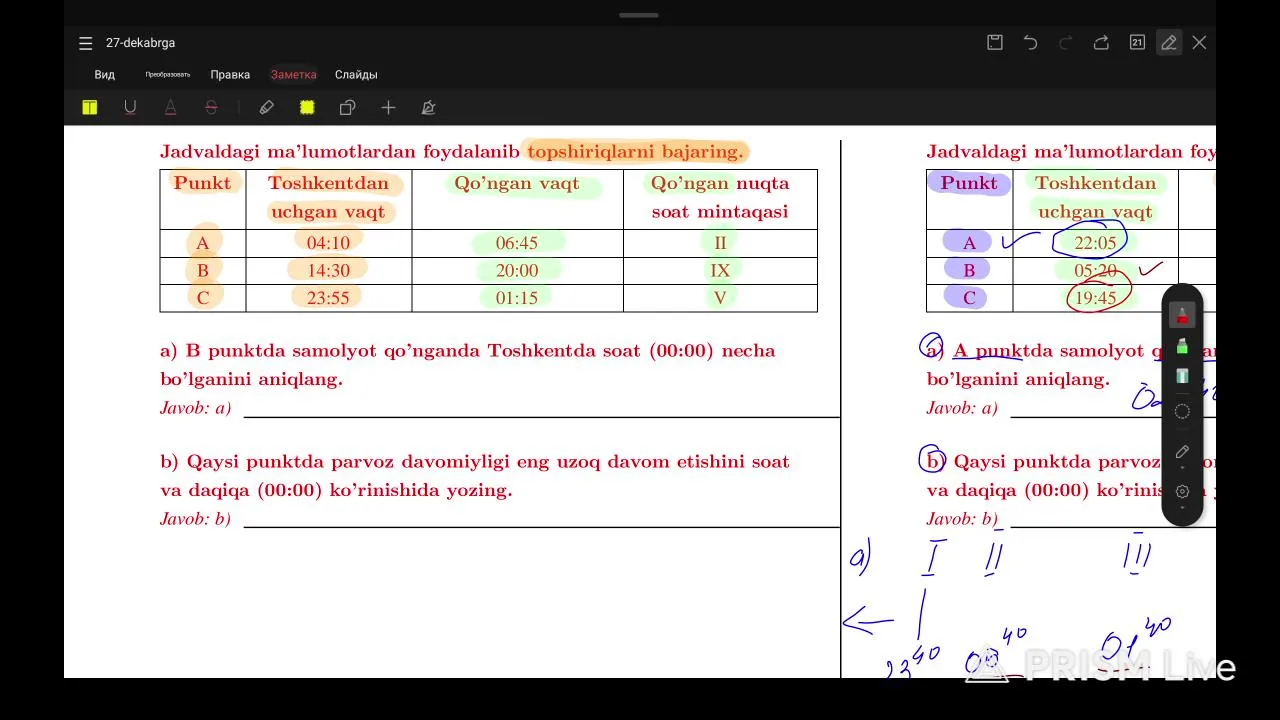 27-dekabrga
21
Вид Преобразовать Правка Заметка Слайды
Jadvaldagi ma'lumotlardan foydalanib topshiriqlarni bajaring.
Punkt Toshkentdan uchgan vaqt Qo'ngan vaqt Qo'ngan nuqta soat mintaqasi
A 04:10 06:45 II
B 14:30 20:00 IX
C 23:55 01:15 V
a) B punktda samolyot qo'nganda Toshkentda soat (00:00) necha
bo'lganini aniqlang.
Javob: a)
b) Qaysi punktda parvoz davomiyligi eng uzoq davom etishini soat
va daqiqa (00:00) ko'rinishida yozing.
Javob: b)
Jadvaldagi ma'lumotlardan
Punkt Toshkentdan uchgan vaqt
A 22:05
B 05:20
C 19:45
a) A punktda samolyot
bo'lganini aniqlang.
Javob: a)
b) Qaysi punktda
va daqiqa (00:00)
Javob: b)
a) I II III
23 40 00 40 01 40
PRISM Live